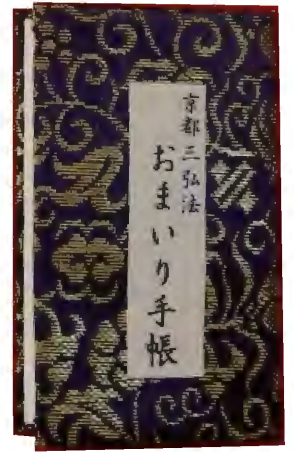 京都三弘法
おまいり手帳